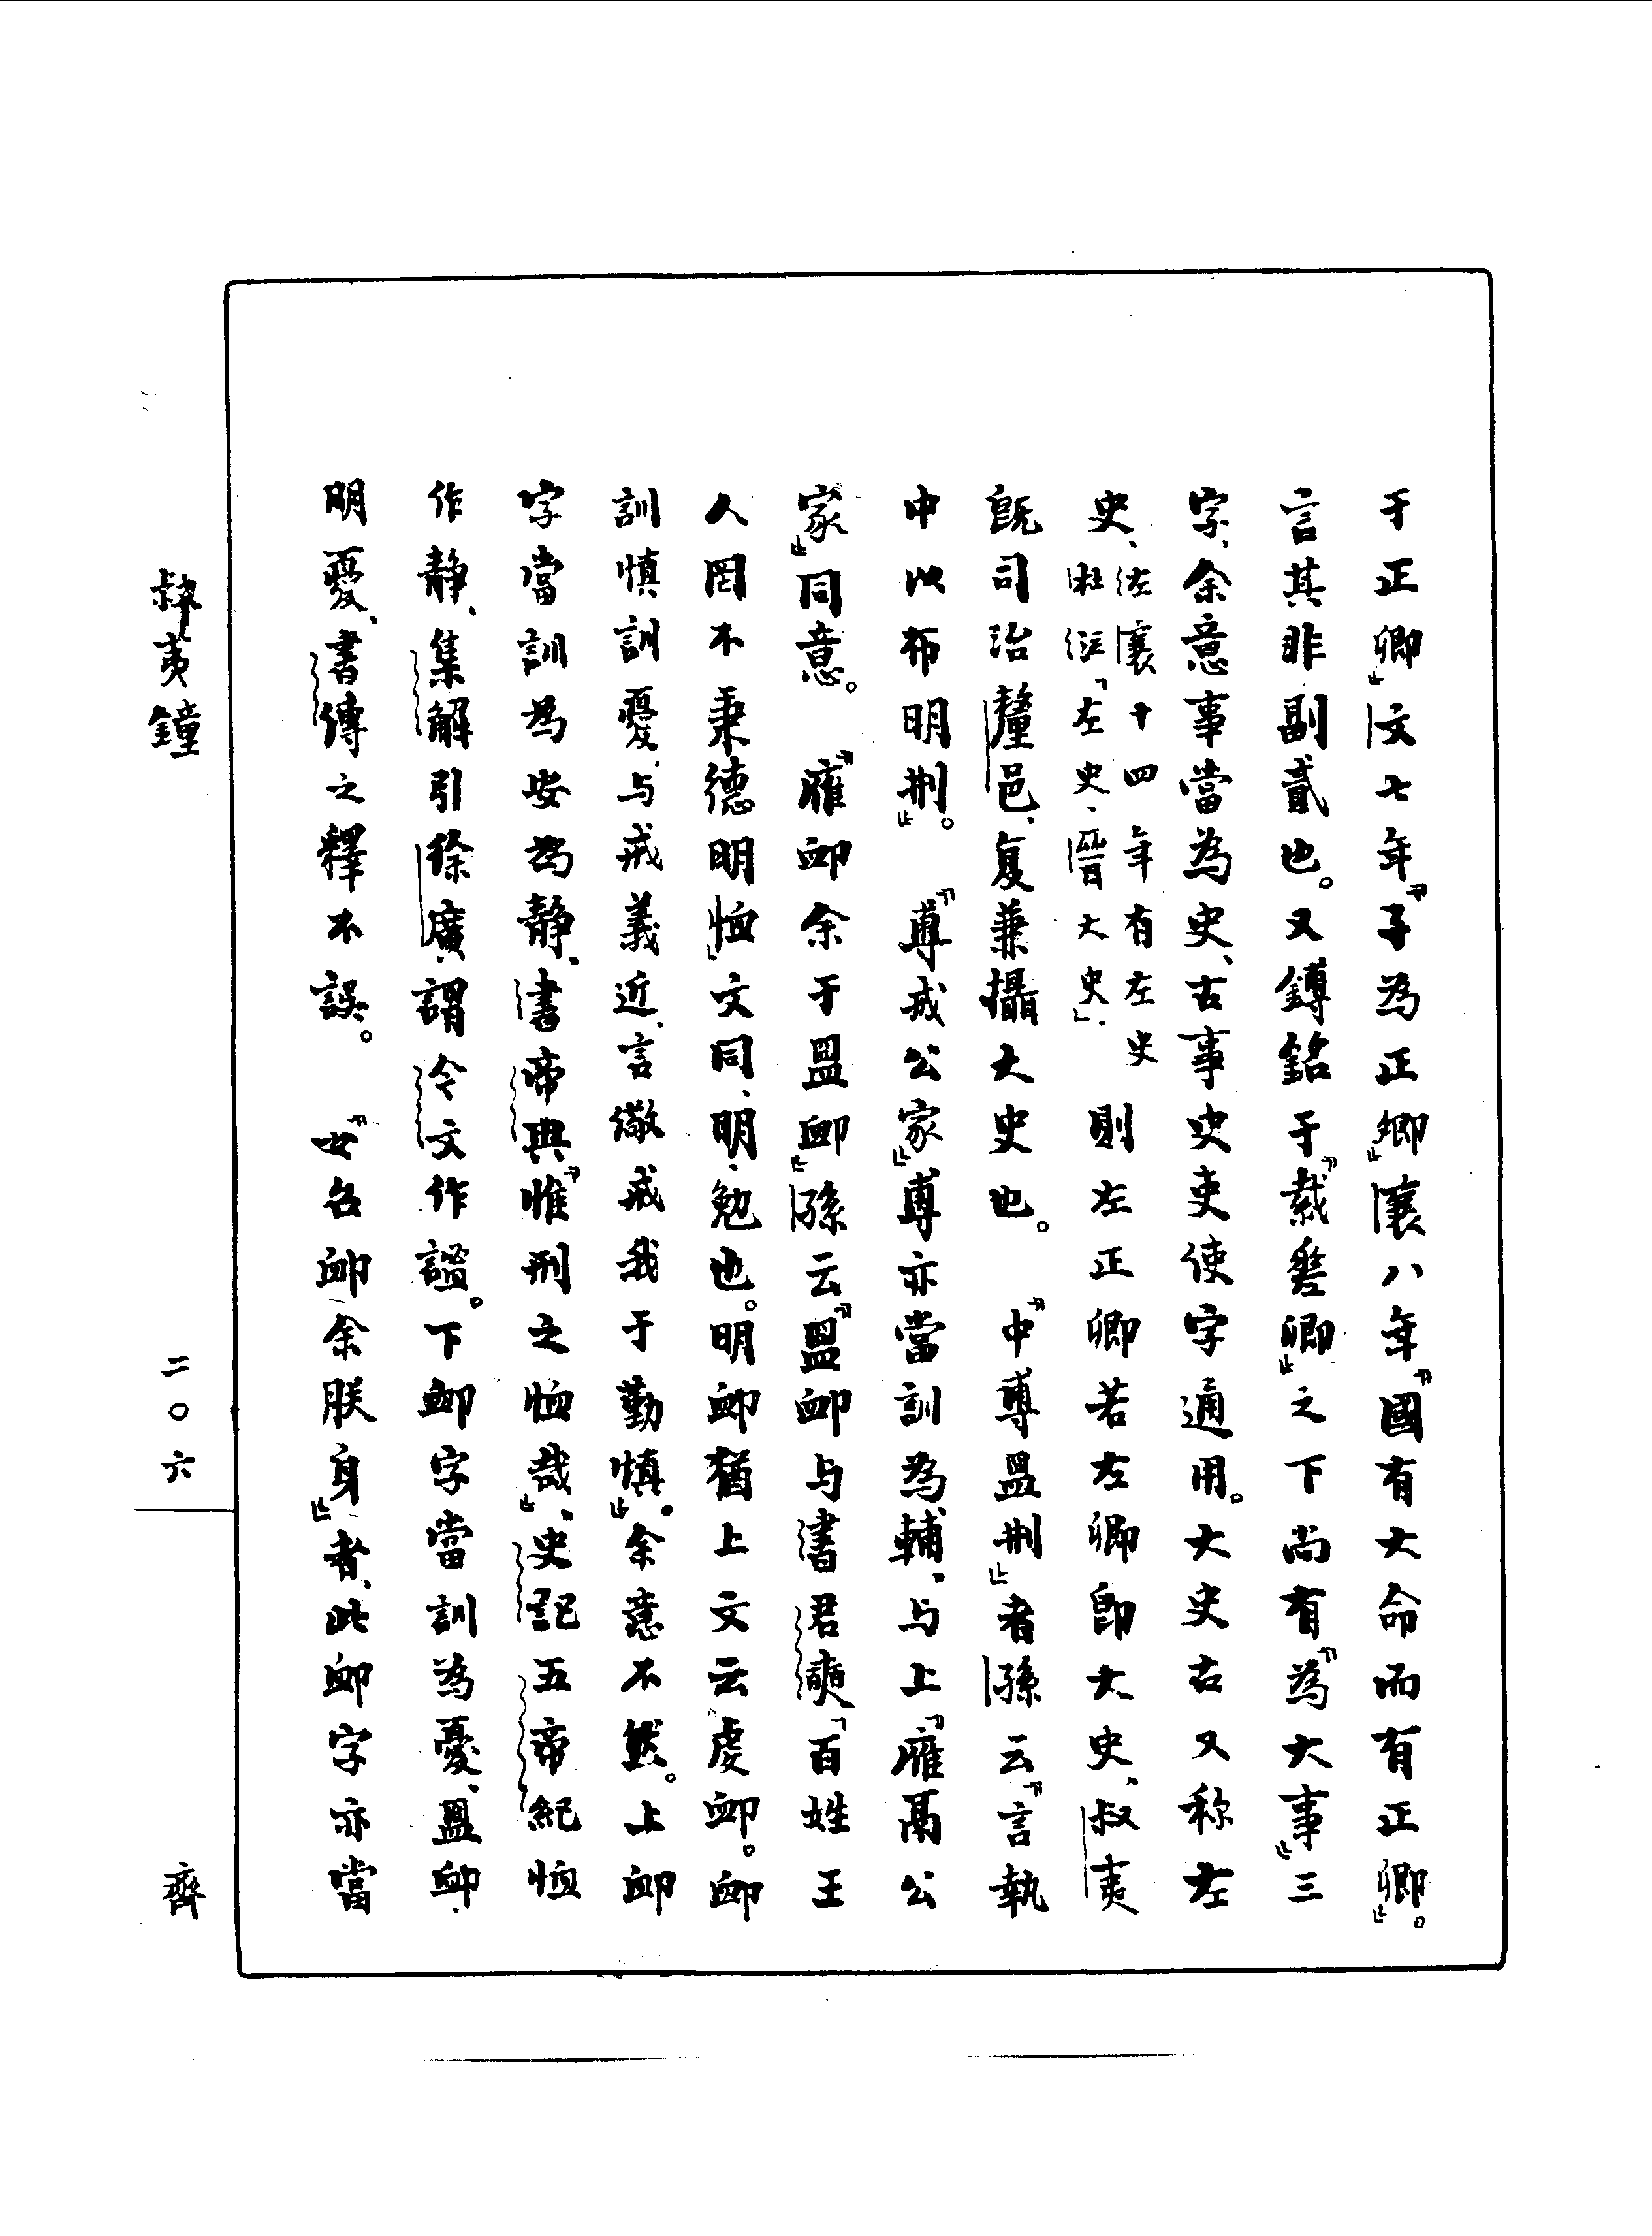 于正卿」文七年「子為正卿」襄八年「國有大命而有正卿」。
言其非副貳也。又鎛銘于「𢦚卿」之下尚有「為大事」三
字、余意事當為史、古事史吏使字通用。大史古又称左
史、
左襄十四年有左史
杜注「左史、晉大史」、
則左正卿若左卿即大史、叔夷
既司治釐邑、复兼攝大史也。「中尃盟刑」者孫云「言執
中以布明刑」。「尃戒公家」尃亦當訓為輔、与上「雁鬲公
家」同意。「雁卹余于盟卹」孫云「盟卹与書君奭「百姓王
人罔不秉德明恤」文同、明、勉也。明卹猶上文云虔卹。卹
訓慎訓憂、与戒義近、言儆戒我于勤慎」。余意不然。上卹
字當訓為安為静、書帝典「惟刑之恤哉」、史記五帝紀恤
作静、集解引徐廣謂今文作謐。下卹字當訓為憂、盟卹、
明憂、書傳之釋不誤。「女台卹余朕身」者、此卹字亦當
叔夷鐘
二〇六
齊